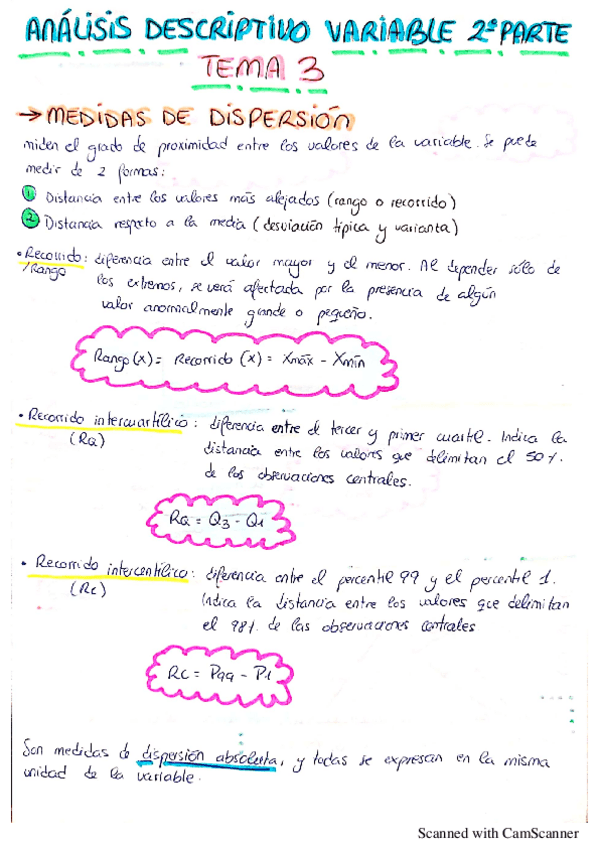 ANÁLISIS DESCRIPTIVO VARIABLE 2ª PARTE
TEMA 3
→ MEDIDAS DE DISPERSIÓN
miden el grado de proximidad entre los valores de la variable. Se puede
medir de 2 formas:
① Distancia entre los valores más alejados (rango o recorrido)
② Distancia respecto a la media (desviación típica y varianta)
• Recorrido: diferencia entre el valor mayor y el menor. Al depender sólo de
/Rango los extremos, se verá afectada por la presencia de algún
valor anormalmente grande o pequeño.
Rango (x) = Recorrido (x) = Xmáx - Xmín
• Recorrido intercuartílico: diferencia entre el tercer y primer cuartil. Indica la
(RQ) distancia entre los valores que delimitan el 50%.
de las observaciones centrales.
RQ = Q3 - Q1
• Recorrido intercentílico: diferencia entre el percentil 99 y el percentil 1.
(Rc) Indica la distancia entre los valores que delimitan
el 98% de las observaciones centrales
Rc = P99 - P1
Son medidas de dispersión absoluta, y todas se expresan en la misma
unidad de la variable.
Scanned with CamScanner